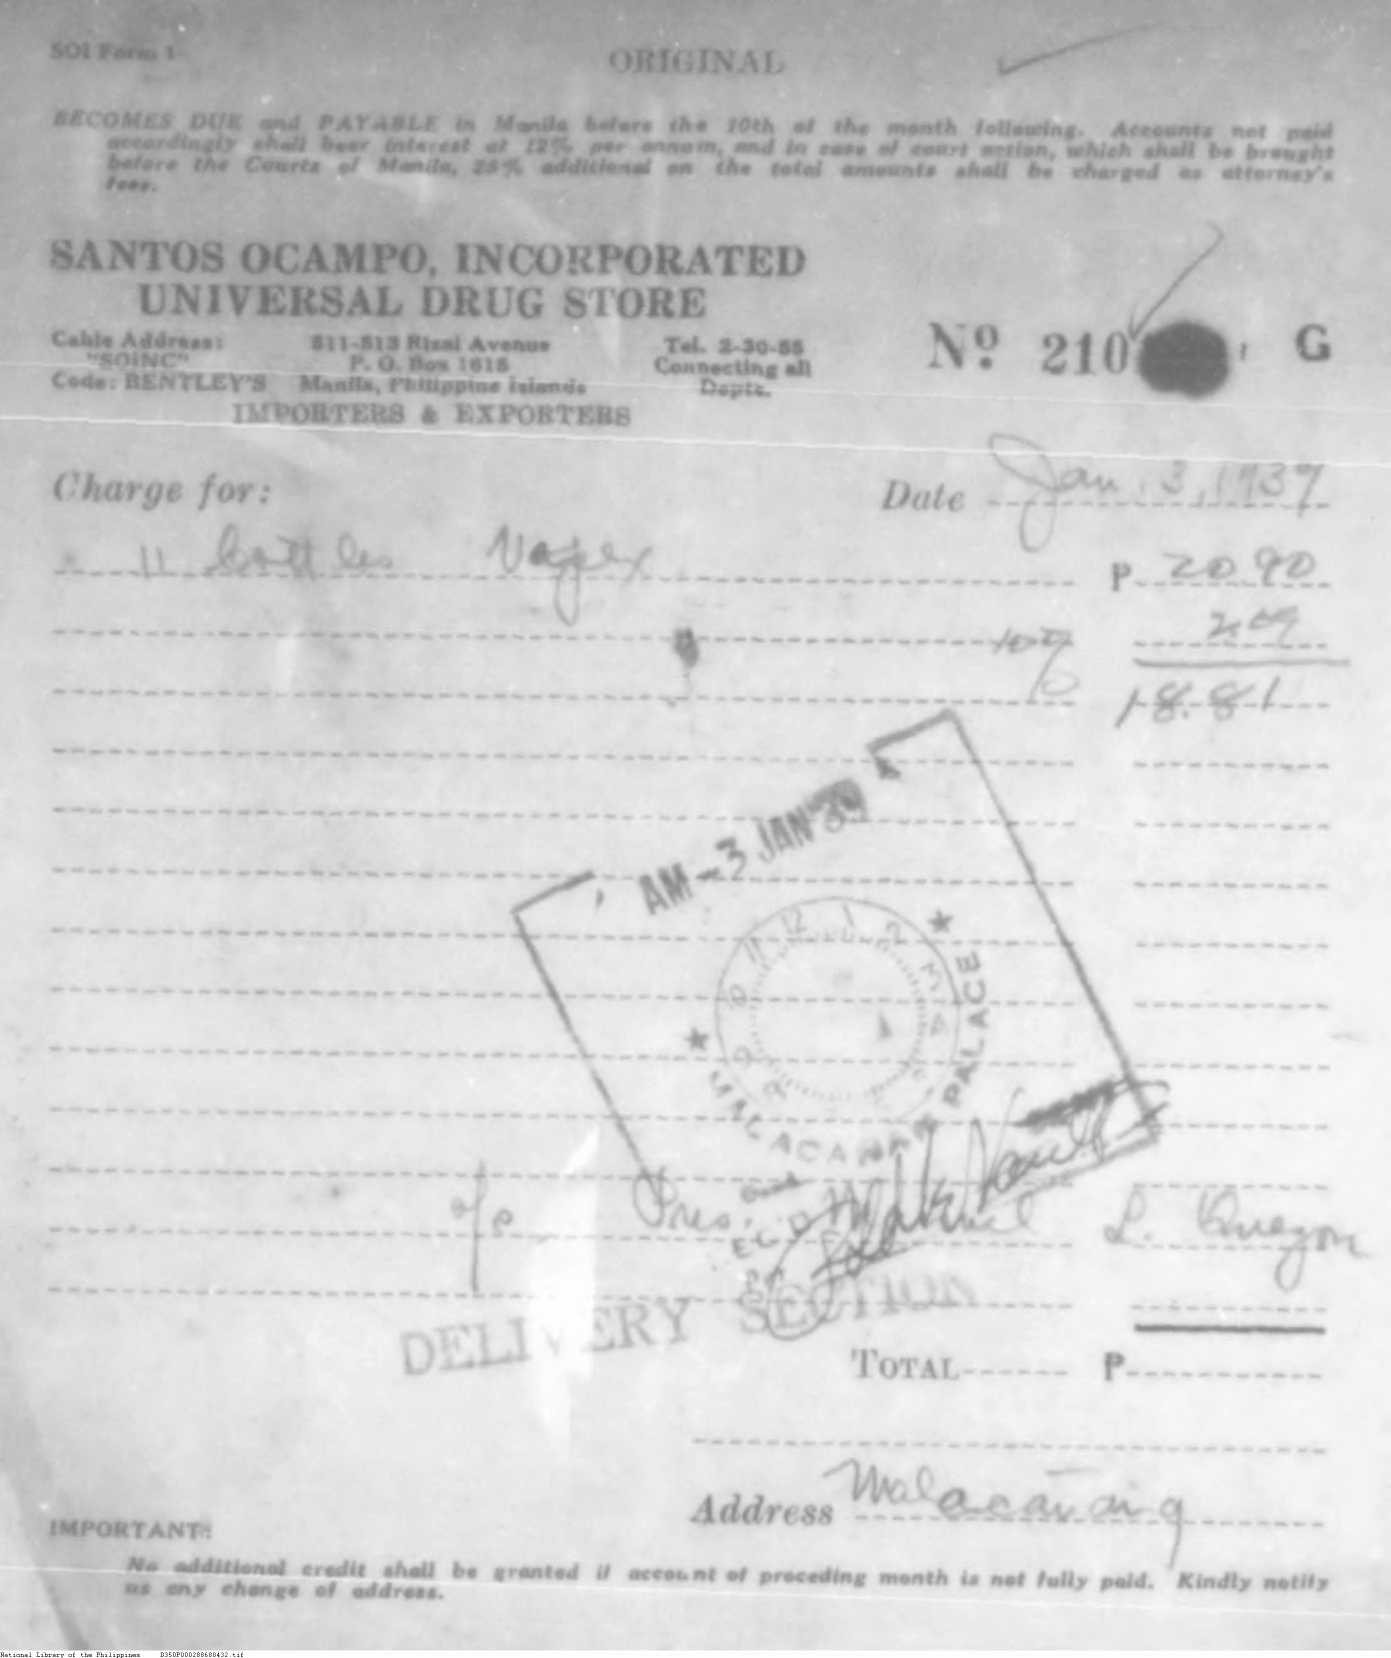 SOI Form 1
ORIGINAL
BECOMES DUE and PAYABLE in Manila before the 10th of the month following. Accounts not paid
accordingly shall bear interest at 12% per annum, and in case of court action, which shall be brought
before the Courts of Manila, 25% additional on the total amounts shall be charged as attorney's
fees.
SANTOS OCAMPO, INCORPORATED
UNIVERSAL DRUG STORE
Cable Address: 811-813 Rizal Avenue Tel. 2-30-55
"SOINC" P. O. Box 1615 Connecting all
Code: BENTLEY'S Manila, Philippine Islands Depts.
IMPORTERS & EXPORTERS
Nº 210 G
Charge for:
Date Jan. 3, 1939
11 bottles ₱ 20.90
10% 2.09
18.81
AM - 3 JAN '39
12 1 2 3 4
★ MALACAÑAN PALACE ★
a/c Pres. Manuel L. Quezon
DELIVERY SECTION
TOTAL ₱
Address Malacañang
IMPORTANT:
No additional credit shall be granted if account of preceding month is not fully paid. Kindly notify
us any change of address.
National Library of the Philippines D350P000288688432.tif